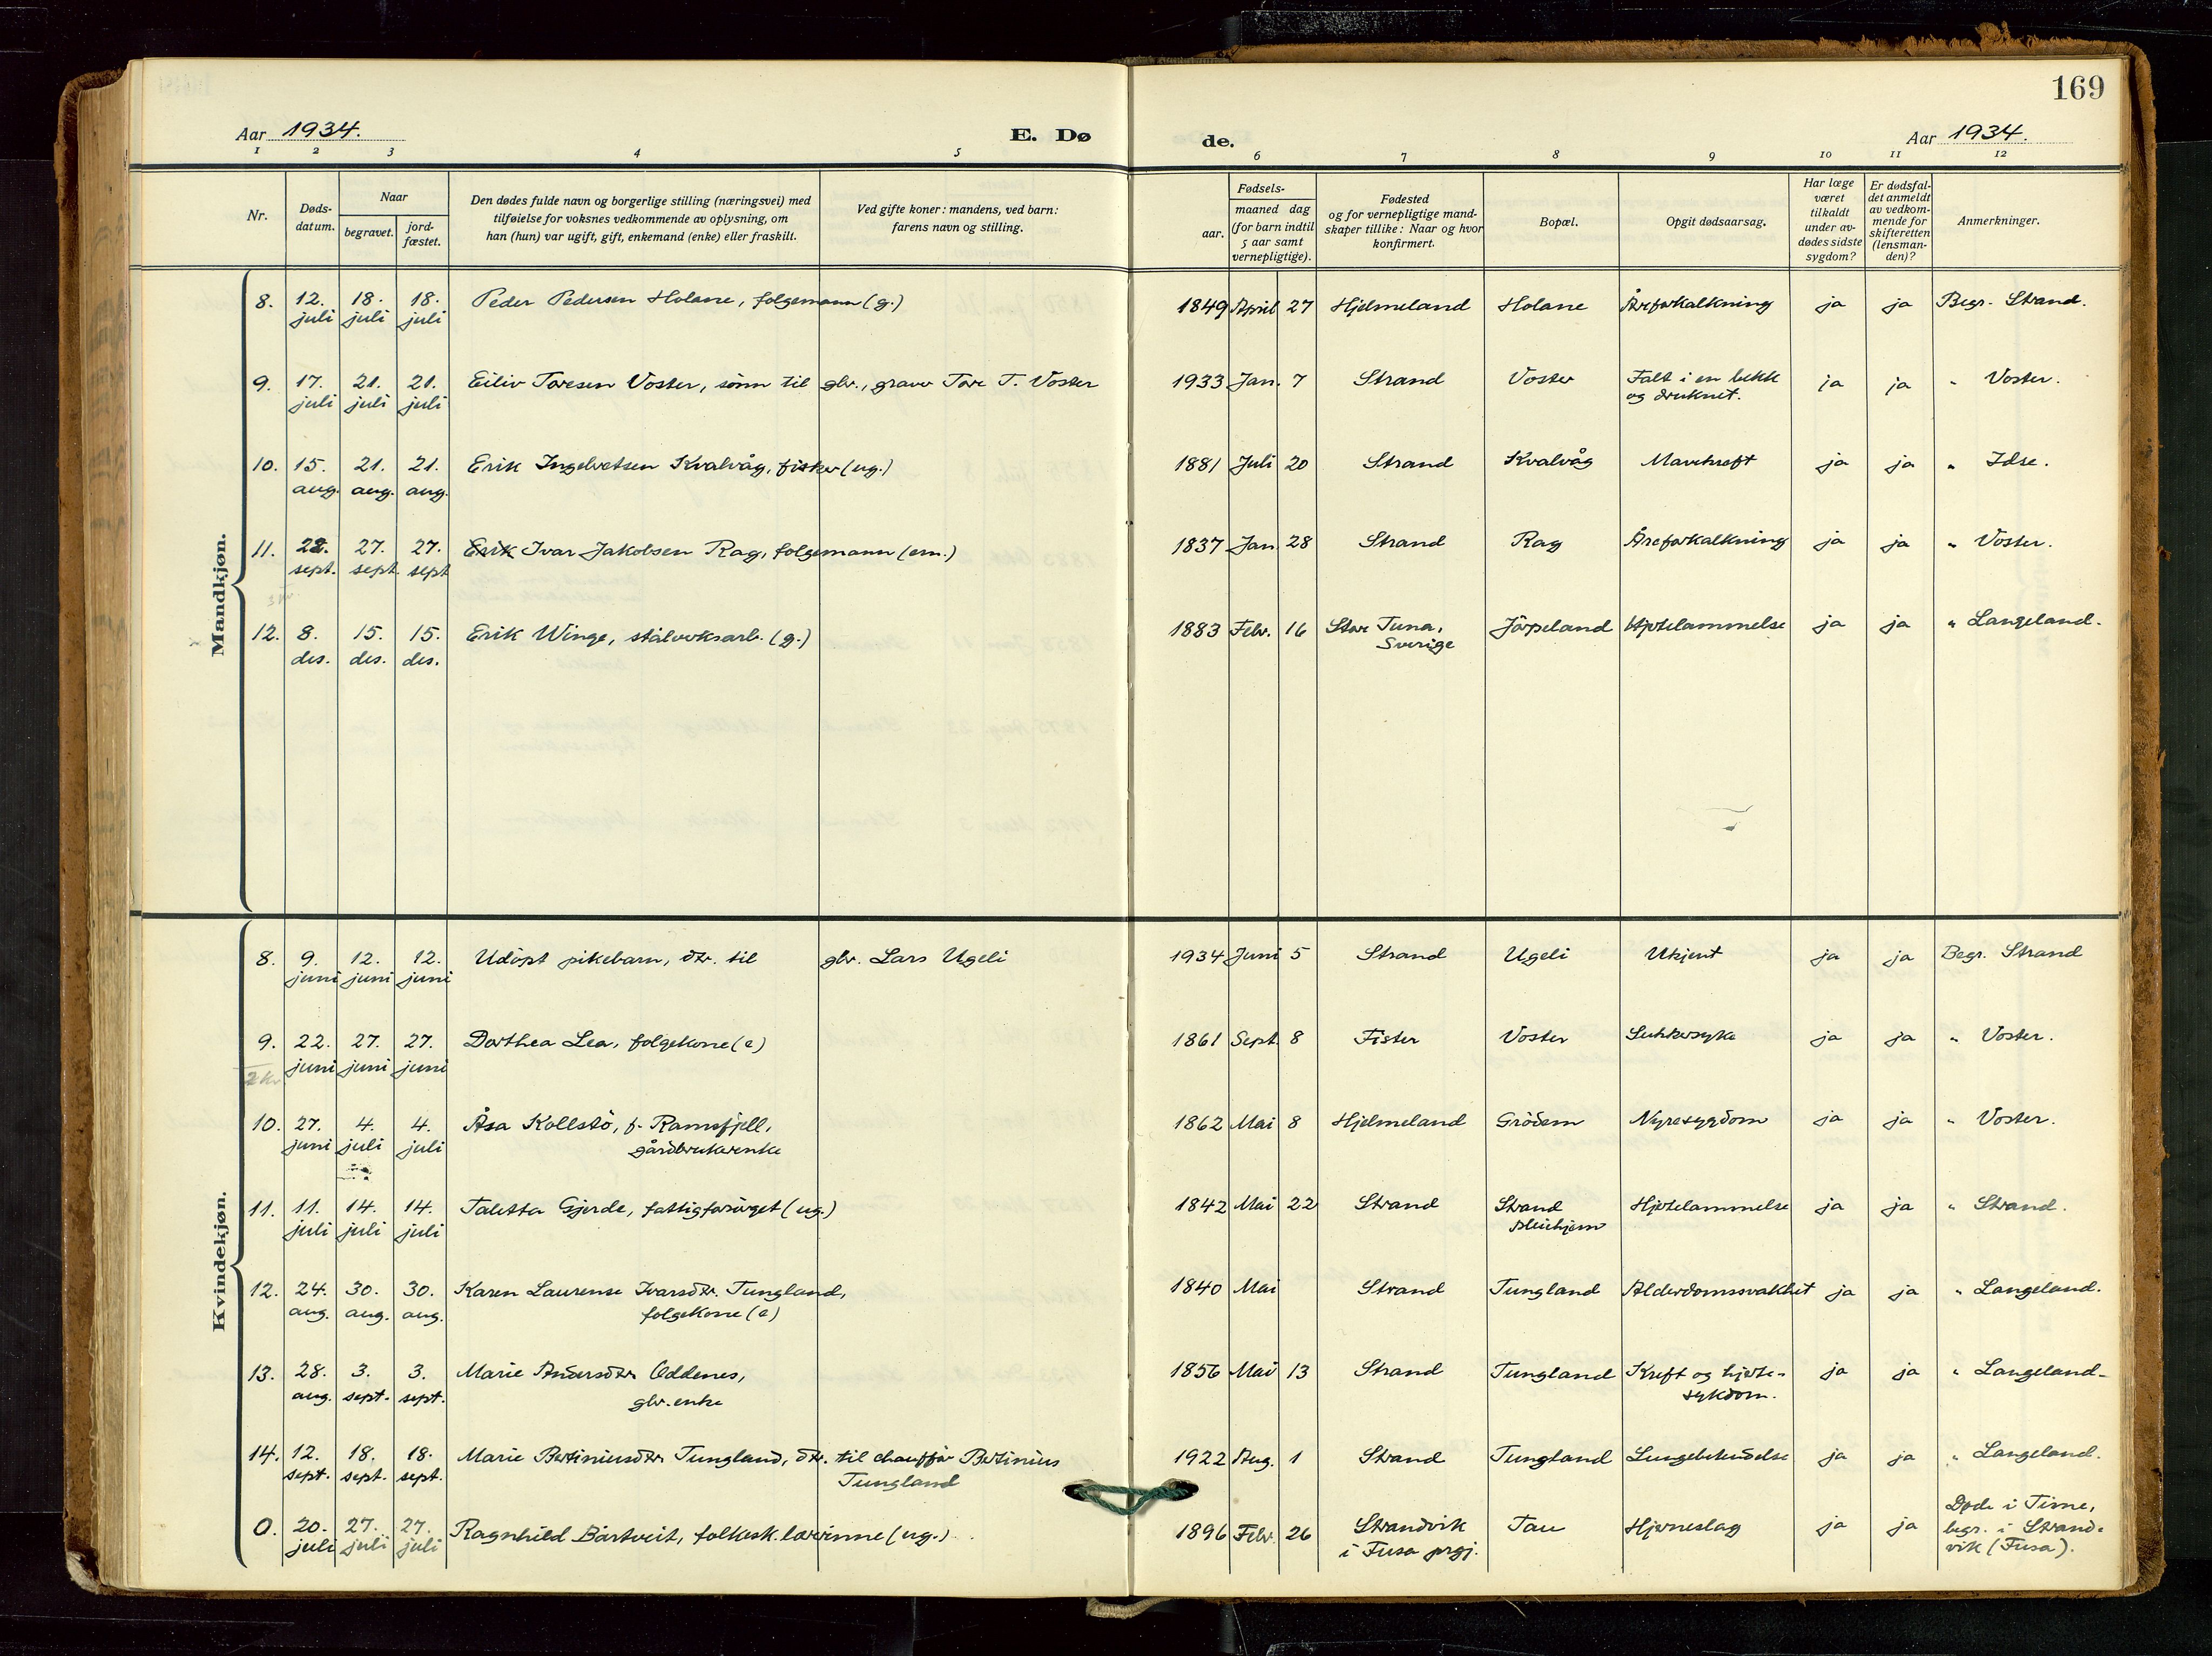 169
Aar 1934. E. Dø de. Aar 1934.
1 2 3 4 5 6 7 8 9 10 11 12
Nr.
Døds-
datum.
Naar
begravet.
jord-
fæstet.
Den dødes fulde navn og borgerlige stilling (næringsvei) med
tilføielse for voksnes vedkommende av oplysning, om
han (hun) var ugift, gift, enkemand (enke) eller fraskilt.
Ved gifte koner: mandens, ved barn:
farens navn og stilling.
Fødsels-
aar.
maaned dag
(for barn indtil
5 aar samt
vernepligtige).
Fødested
og for vernepligtige mand-
skaper tillike: Naar og hvor
konfirmert.
Bopæl.
Opgit dødsaarsag.
Har læge
været
tilkaldt
under av-
dødes sidste
sygdom?
Er dødsfal-
det anmeldt
av vedkom-
mende for
skifteretten
(lensman-
den)?
Anmerkninger.
Mandkjøn.
8. 12. 18. 18. Peder Pedersen Holane, folgemann (g.) 1849 April 27 Hjelmeland Holane Åreforkalkning ja ja Begr. Strand.
juli juli juli
9. 17. 21. 21. Eiliv Toresen Voster, sönn til gbr., graver Tore T. Voster 1933 Jan. 7 Strand Voster Falt i en bekk ja ja " Voster.
juli juli juli og druknet.
10. 15. 21. 21. Erik Ingelvetsen Kvalvåg, fisker (ug.) 1881 Juli 20 Strand Kvalvåg Mavekreft ja ja " Idse.
aug. aug. aug.
11. 22. 27. 27. Erik Ivar Jakobsen Rag, folgemann (em.) 1837 Jan. 28 Strand Rag Åreforkalkning ja ja " Voster.
sept. sept. sept
12. 8. 15. 15. Erik Winge, stålverksarb. (g.) 1883 Febr. 16 Stora Tuna, Jörpeland Hjertelammelse ja ja " Langeland.
des. des. des. Sverige
Kvindekjøn.
8. 9. 12. 12. Udöpt pikebarn, dtr. til gbr. Lars Ugeli 1934 Juni 5 Strand Ugeli Ukjent ja ja Begr. Strand
juni juni juni
9. 22. 27. 27. Dorthea Lea, folgekone (e) 1861 Sept. 8 Fister Voster Sukkersyke ja ja " Voster.
2 kv. juni juni juni
10. 27. 4. 4. Åsa Kollstö, f. Ramsfjell, 1862 Mai 8 Hjelmeland Grödem Nyresygdom ja ja " Voster.
juni juli juli gårdbrukerenke
11. 11. 14. 14. Taletta Gjerde, fattigforsörget (ug.) 1842 Mai 22 Strand Strand Hjertelammelse ja ja " Strand.
juli juli juli pleiehjem
12. 24. 30. 30. Karen Laurense Ivarsdtr. Tungland, 1840 Mai Strand Tungland Alderdomssvakhet ja ja " Langeland.
aug. aug. aug. folgekone (e)
13. 28. 3. 3. Marie Andersdtr. Oddenes, 1856 Mai 13 Strand Tungland Kreft og hjerte- ja ja " Langeland.
aug. sept. sept. gbr. enke sykdom.
14. 12. 18. 18. Marie Bertiniusdtr. Tungland, dtr. til chauffør Bertinius 1922 Aug. 1 Strand Tungland Lungebetendelse ja ja " Langeland.
sept. sept. sept. Tungland
0. 20. 27. 27. Ragnhild Bårtveit, folkesk.lærerinne (ug.) 1896 Febr. 26 Strandvik Tau Hjerneslag ja ja Døde i Time,
juli juli juli i Fusa prgj. begr. i Strand-
vik (Fusa).